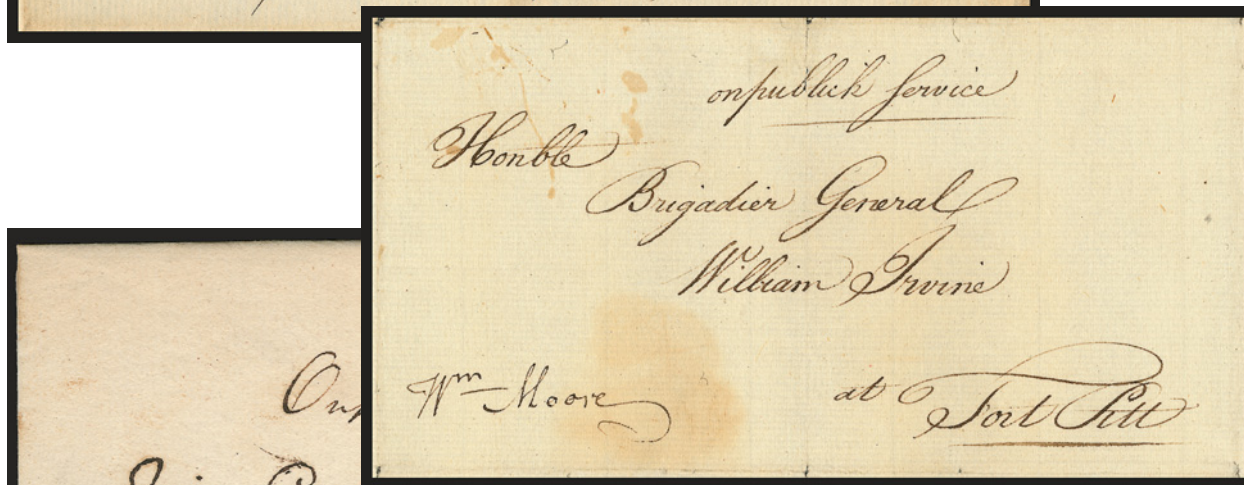 on publick Service
Honble
Brigadier General
William Irvine
Wm Moore
at Fort Pitt